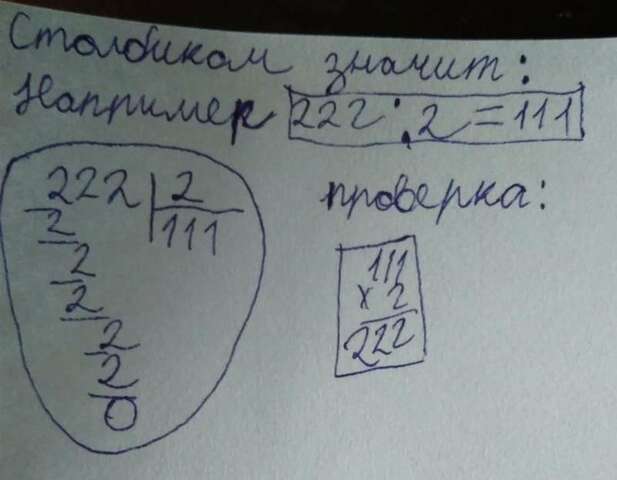 Столбиком значит:
Например 222:2=111
222 | 2
2 111
2
2
2
2
0
проверка:
111
x 2
222